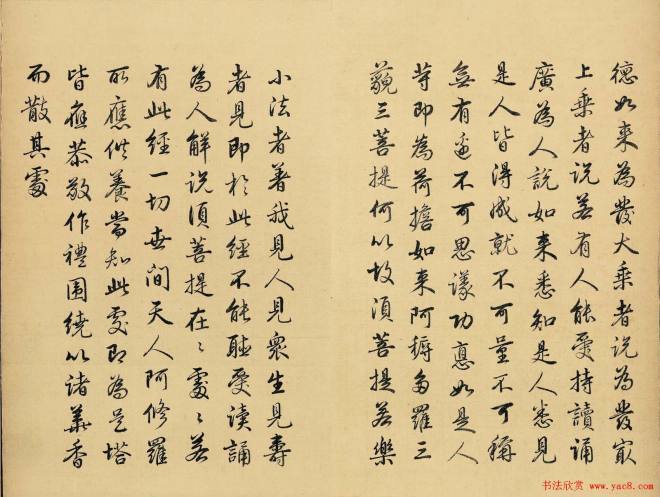 德如来為發大乘者說為發㝡
上乘者說若有人能受持讀誦
廣為人說如来悉知是人悉見
是人皆得成就不可量不可稱
無有邊不可思議功德如是人
等即為荷擔如来阿耨多羅三
藐三菩提何以故須菩提若樂
小法者著我見人見衆生見壽
者見即於此經不能聽受讀誦
為人解說須菩提在〻處〻若
有此經一切世間天人阿修羅
所應供養當知此處即為是塔
皆應恭敬作禮圍繞以諸華香
而散其處
书法欣赏 www.yac8.com